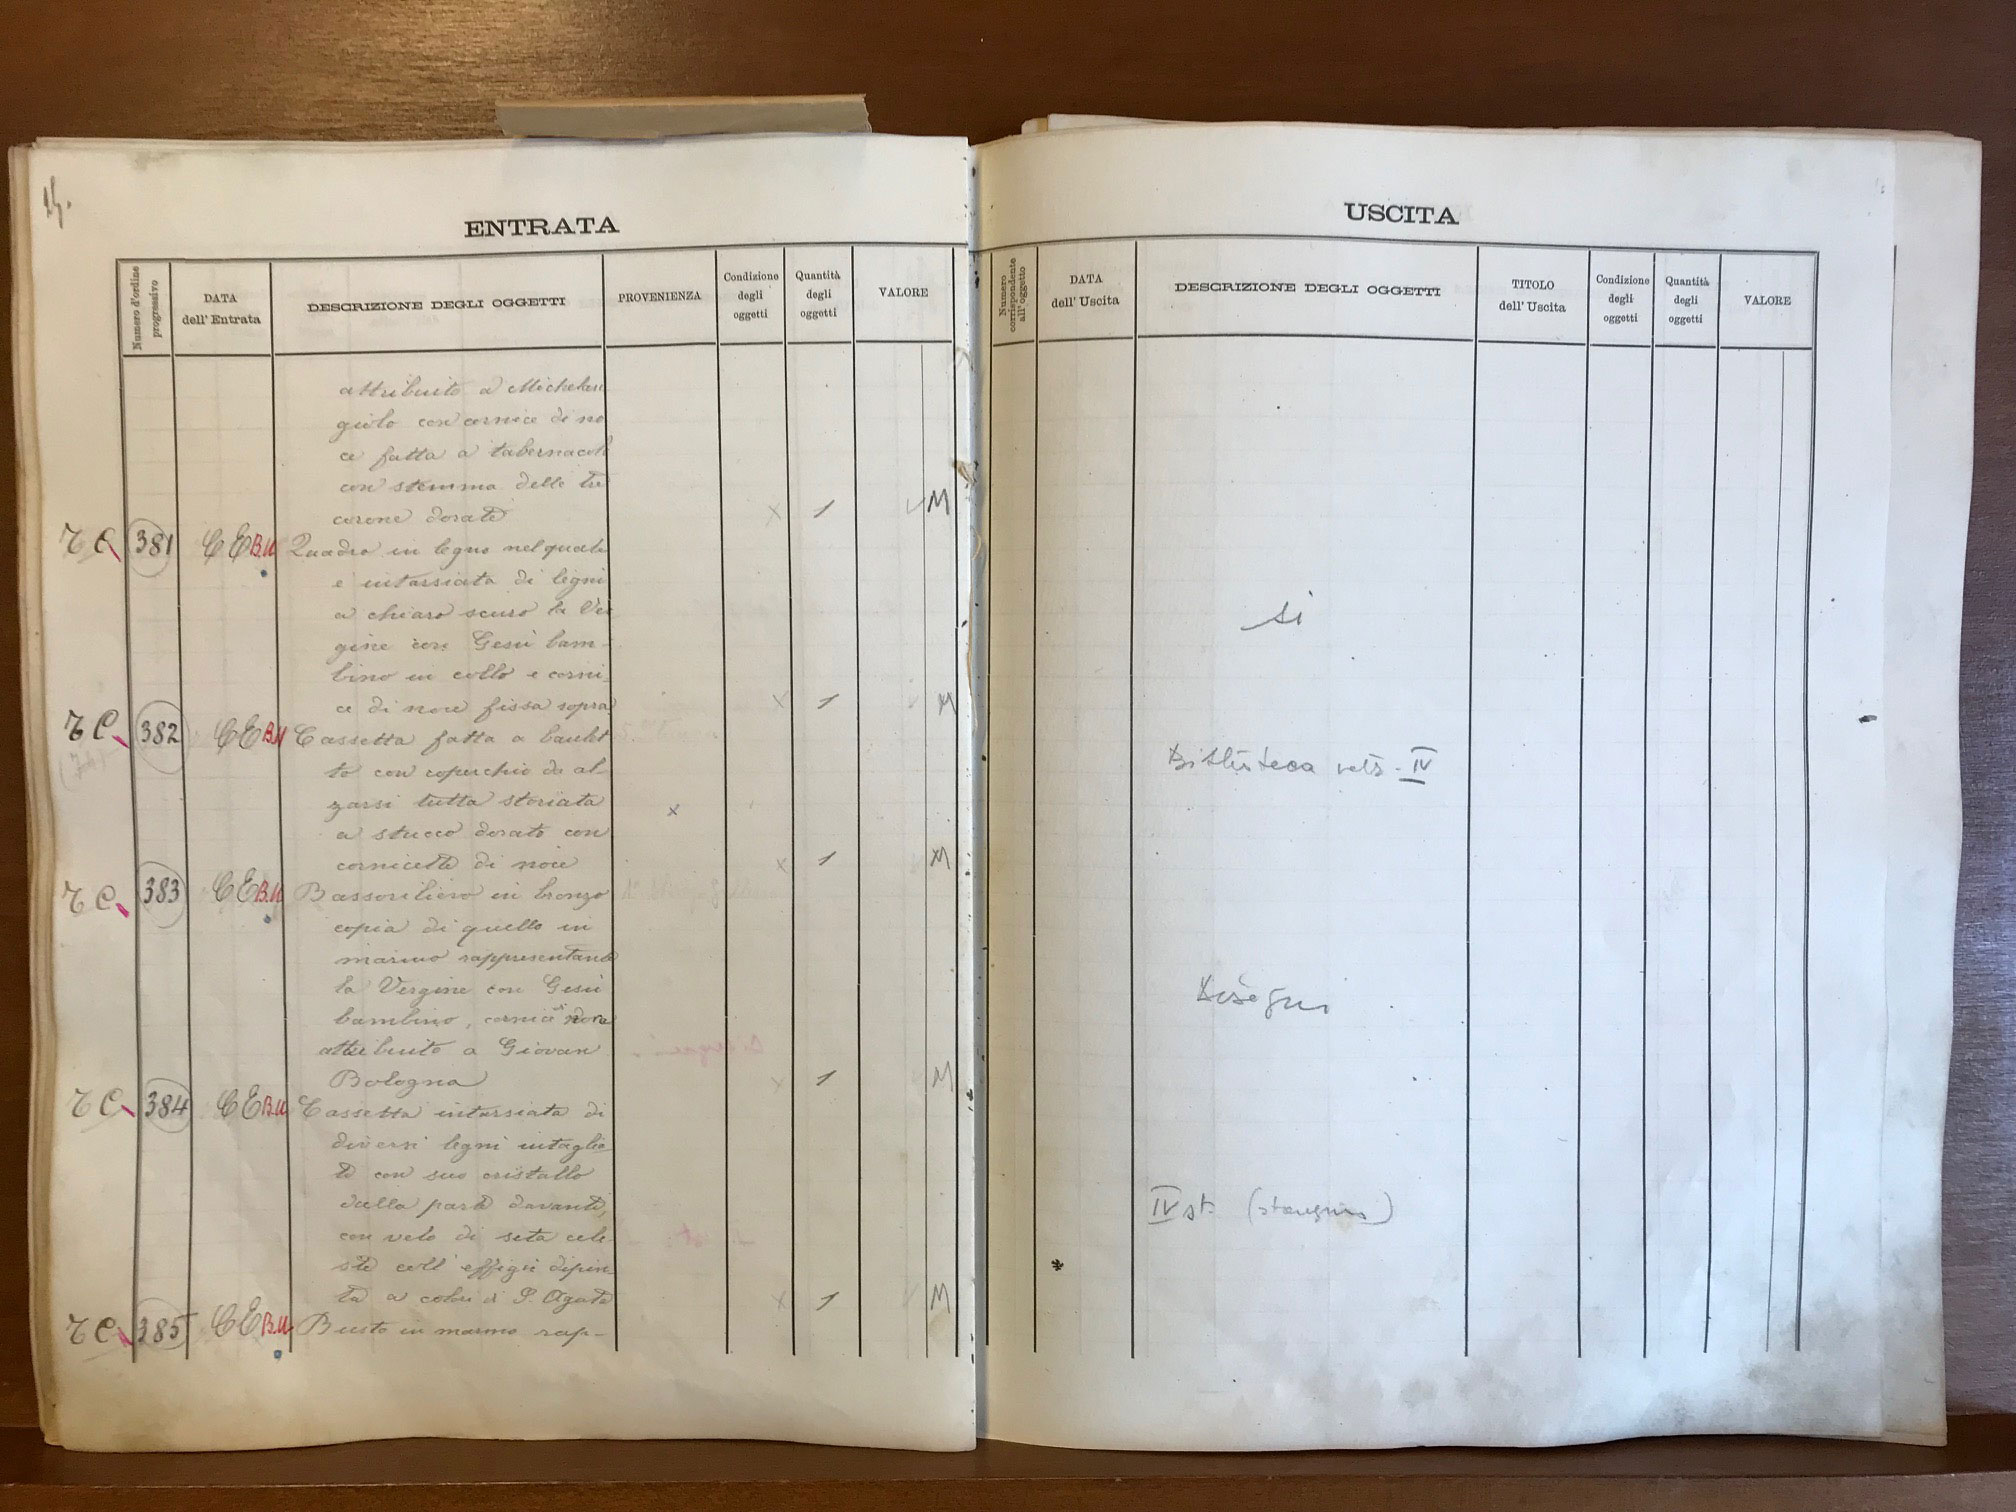 14.
ENTRATA
Numero d'ordine progressivo
DATA dell' Entrata
DESCRIZIONE DEGLI OGGETTI
PROVENIENZA
Condizione degli oggetti
Quantità degli oggetti
VALORE
attribuito a Michelan
giolo con cornice di no
ce fatta a tabernacolo
con stemma delle tre
corone dorate x 1 M
TC 381 CE B.U Quadro in legno nel quale
è intarsiata di legni
a chiaro scuro la Ver
gine con Gesù bam-
bino in collo e corni-
ce di noce fissa sopra x 1 M
TC 382 CE B.U Cassetta fatta a baulet
to con coperchio da al-
zarsi tutta storiata
a stucco dorato con x
cornicette di noce x 1 M
TC 383 CE B.U Bassorilievo in bronzo
copia di quello in
marmo rappresentante
la Vergine con Gesù
bambino, cornice
attribuito a Giovan
Bologna x 1 M
TC 384 CE B.U Cassetta intarsiata di
diversi legni intaglia
ta con suo cristallo
dalla parte davanti,
con velo di seta cele
ste coll' effigie dipin-
ta a colori di S. Agata x 1 M
TC 385 CE B.U Busto in marmo rap-
USCITA
Numero corrispondente all' oggetto
DATA dell' Uscita
DESCRIZIONE DEGLI OGGETTI
TITOLO dell' Uscita
Condizione degli oggetti
Quantità degli oggetti
VALORE
si
Biblioteca vetr. IV
Disegni
IV st.
*